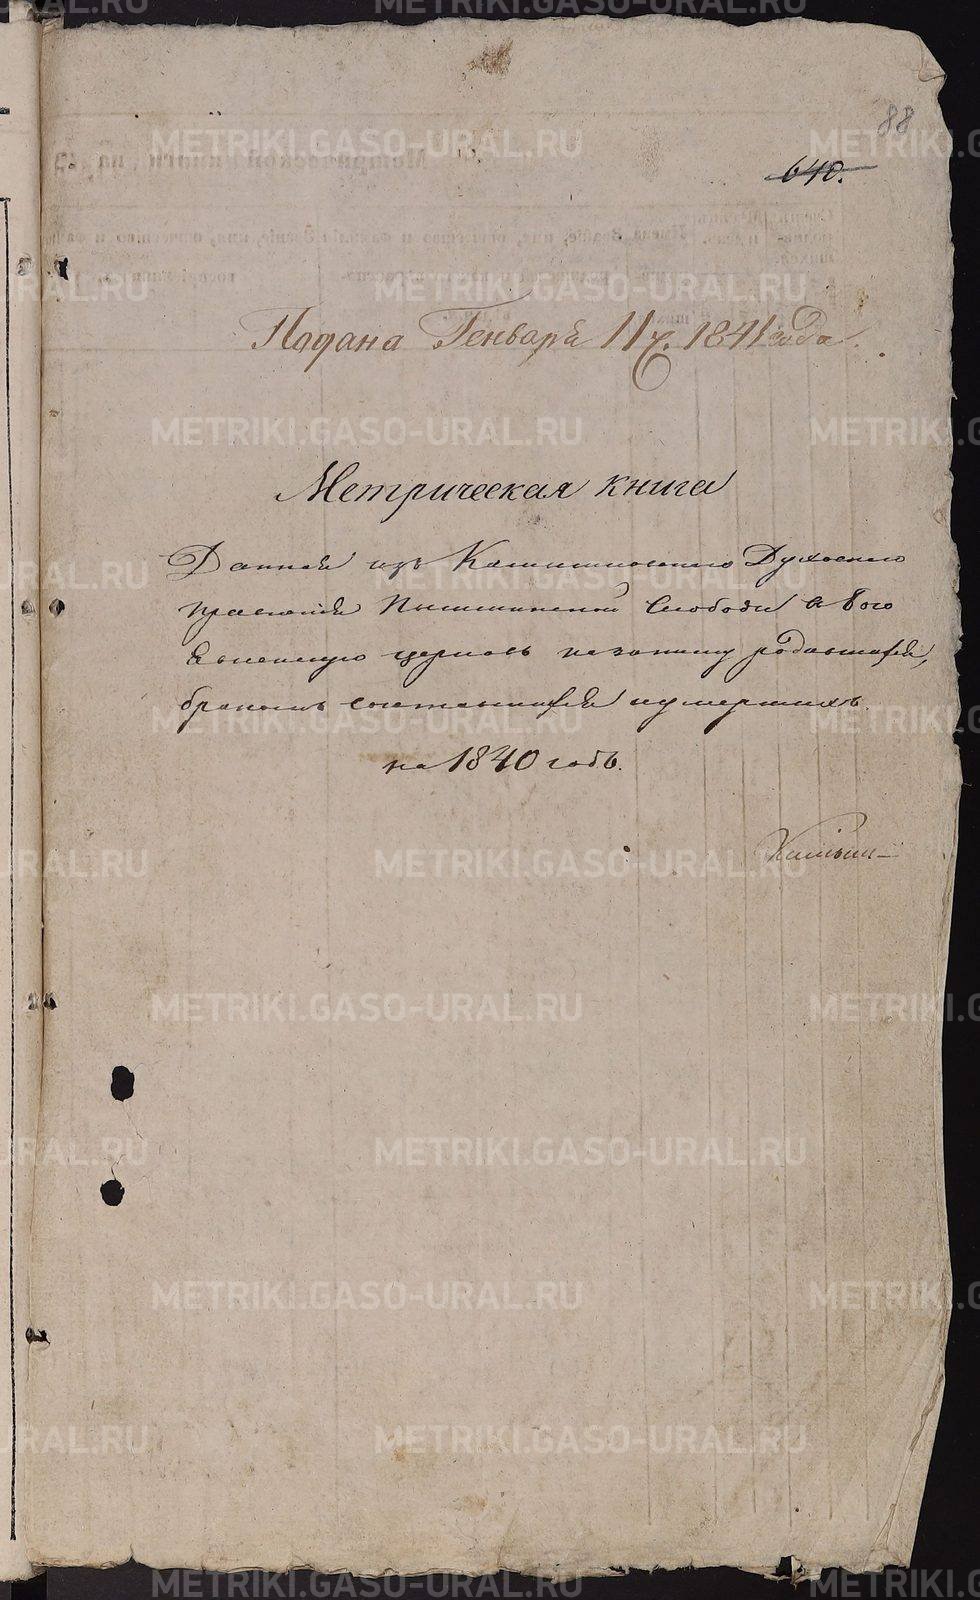 88
640.
Подана Генваря 11 ч. 1841 года.
Метрическая книга
Данная изъ Камышловскаго Духовнаго
правленія Пышминской Слободы в Бого
явленскую церковь на записку родившихся,
бракомъ сочетавшихся и умершихъ
на 1840 годъ.
METRIKI.GASO-URAL.RU